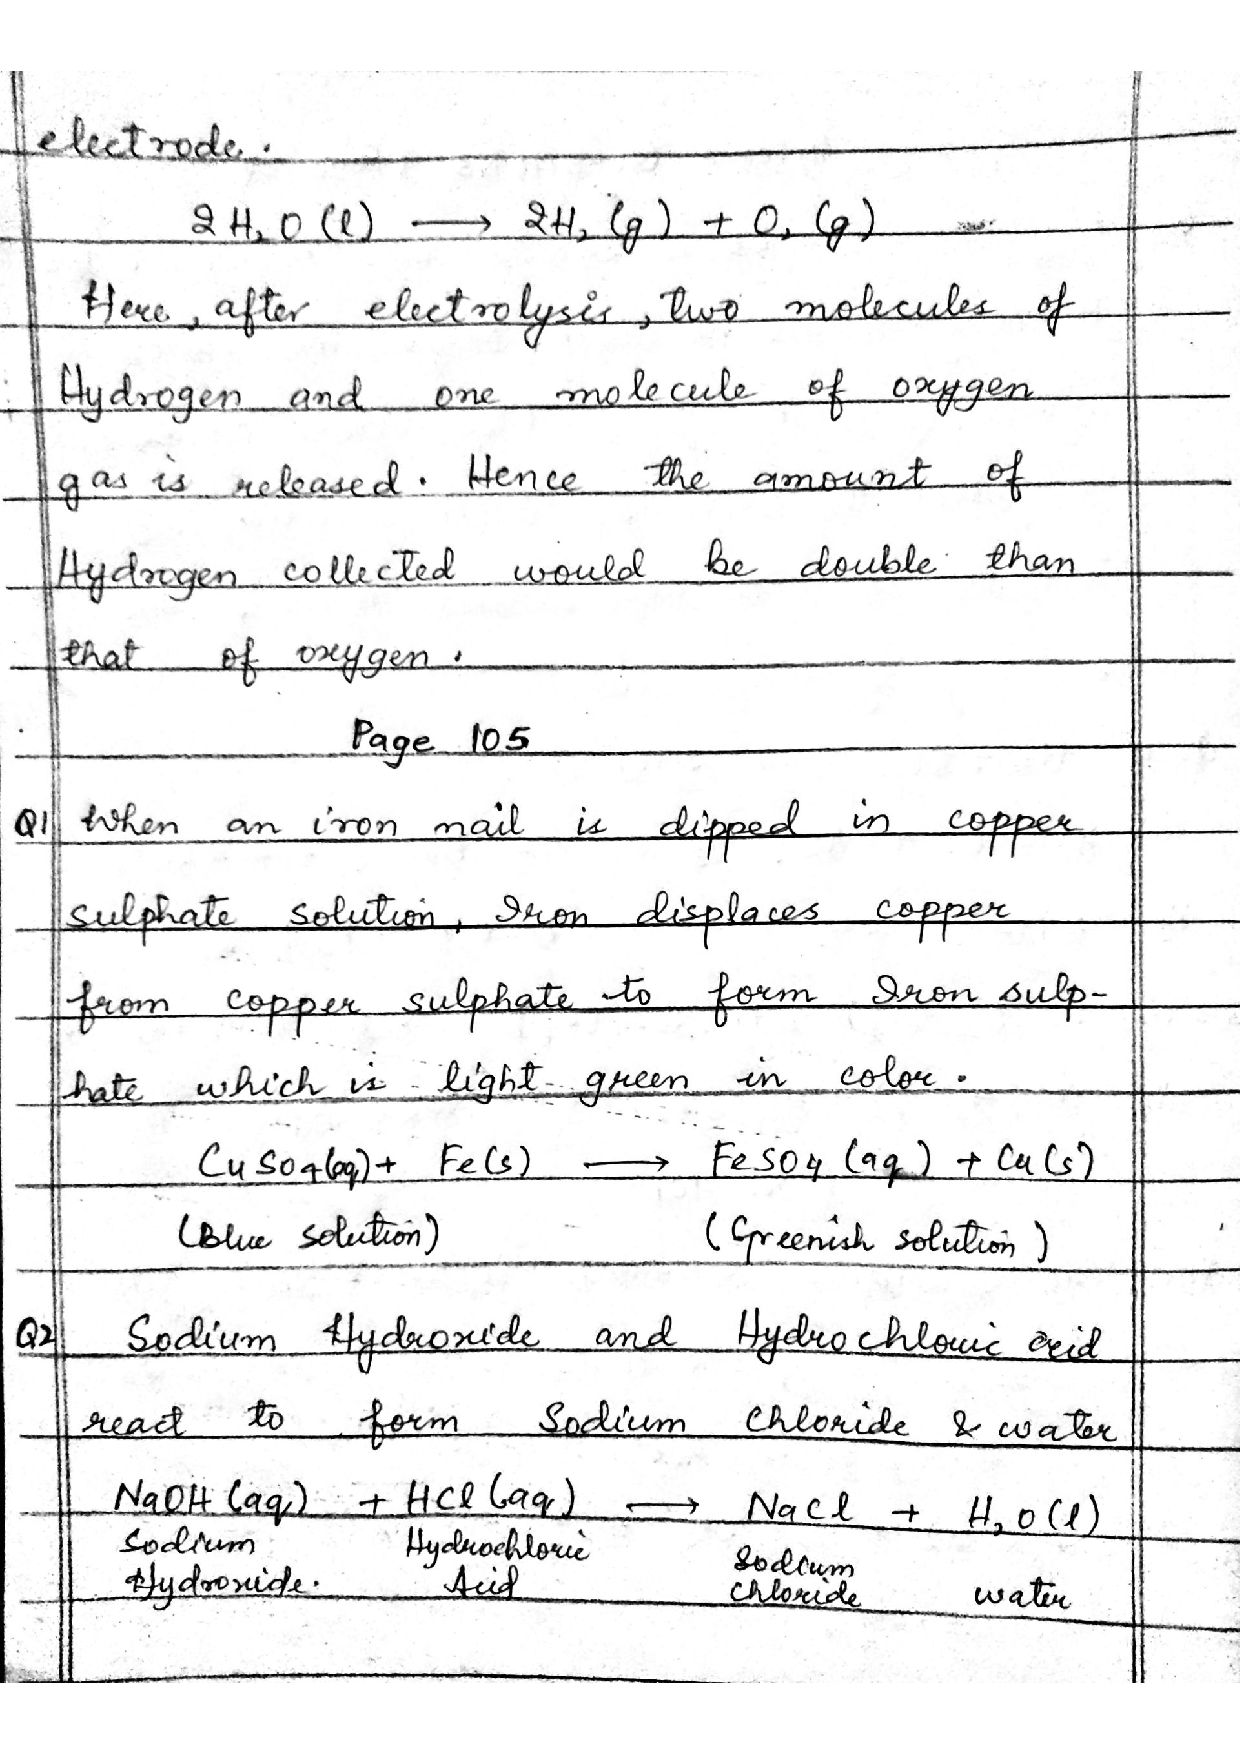 electrode.
2H₂O(l) ⟶ 2H₂(g) + O₂(g)
Here, after electrolysis, two molecules of
Hydrogen and one molecule of oxygen
gas is released. Hence the amount of
Hydrogen collected would be double than
that of oxygen.
Page 105
Q1 When an iron nail is dipped in copper
sulphate solution, Iron displaces copper
from copper sulphate to form Iron sulp-
hate which is light green in color.
CuSO₄(aq) + Fe(s) ⟶ FeSO₄(aq) + Cu(s)
(Blue solution) (Greenish solution)
Q2 Sodium Hydroxide and Hydrochloric acid
react to form Sodium chloride & water
NaOH(aq) + HCl(aq) ⟶ NaCl + H₂O(l)
Sodium Hydroxide. Hydrochloric Acid Sodium chloride water